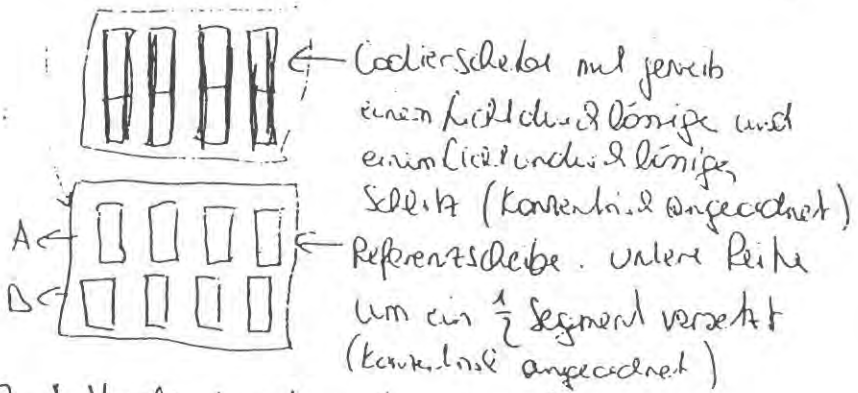 Codierscheibe mit jeweils
einen lichtdurchlässige und
einen lichtundurchlässigen
Schlitz (konzentrisch angeordnet)
A
Referenzscheibe. Untere Reihe
B
um ein 1/2 Segment versetzt
(konzentrisch angeordnet)